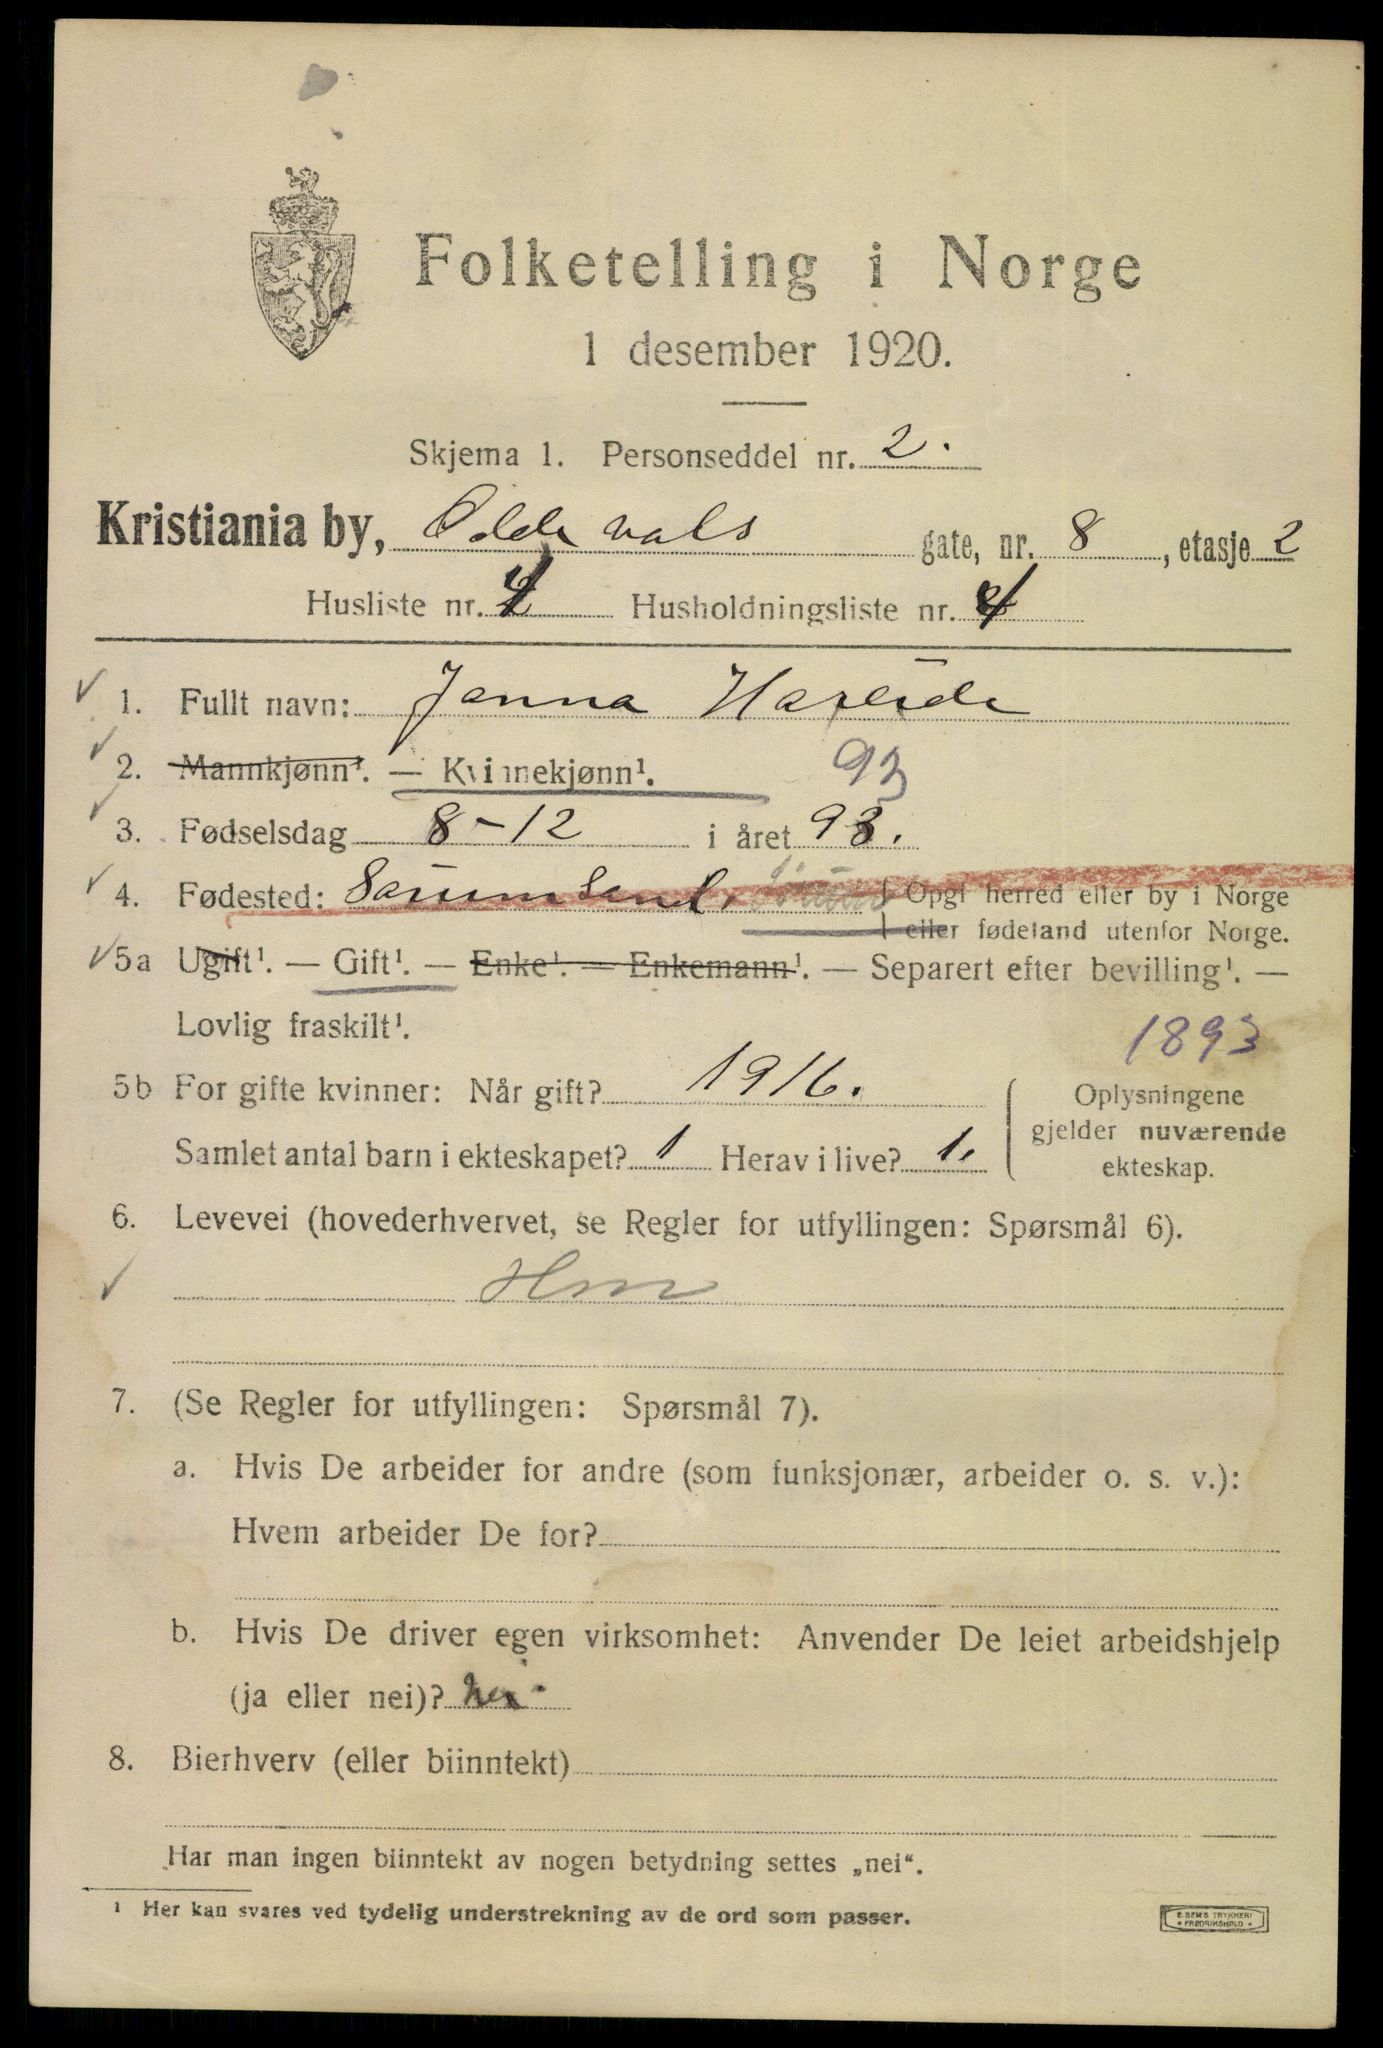 Folketelling i Norge
1 desember 1920.
Skjema 1. Personseddel nr. 2.
Kristiania by, Oddevals gate, nr. 8, etasje 2
Husliste nr. Husholdningsliste nr. 4
1. Fullt navn: Janna Hareide
2. Mannkjønn¹. — Kvinnekjønn¹. 93
3. Fødselsdag 8-12 i året 93.
4. Fødested: Sørumsand, Sørum Opgi herred eller by i Norge
eller fødeland utenfor Norge.
5a Ugift¹. — Gift¹. — Enke¹. — Enkemann¹. — Separert efter bevilling¹. —
Lovlig fraskilt¹. 1893
5b For gifte kvinner: Når gift? 1916. Oplysningene
gjelder nuværende
Samlet antal barn i ekteskapet? 1 Herav i live? 1. ekteskap.
6. Levevei (hovederhvervet, se Regler for utfyllingen: Spørsmål 6).
Hm
7. (Se Regler for utfyllingen: Spørsmål 7).
a. Hvis De arbeider for andre (som funksjonær, arbeider o. s. v.):
Hvem arbeider De for?
b. Hvis De driver egen virksomhet: Anvender De leiet arbeidshjelp
(ja eller nei)? nei.
8. Bierhverv (eller biinntekt)
Har man ingen biinntekt av nogen betydning settes „nei“.
¹ Her kan svares ved tydelig understrekning av de ord som passer.
E. SEM'S TRYKKERI
* FREDRIKSHALD *